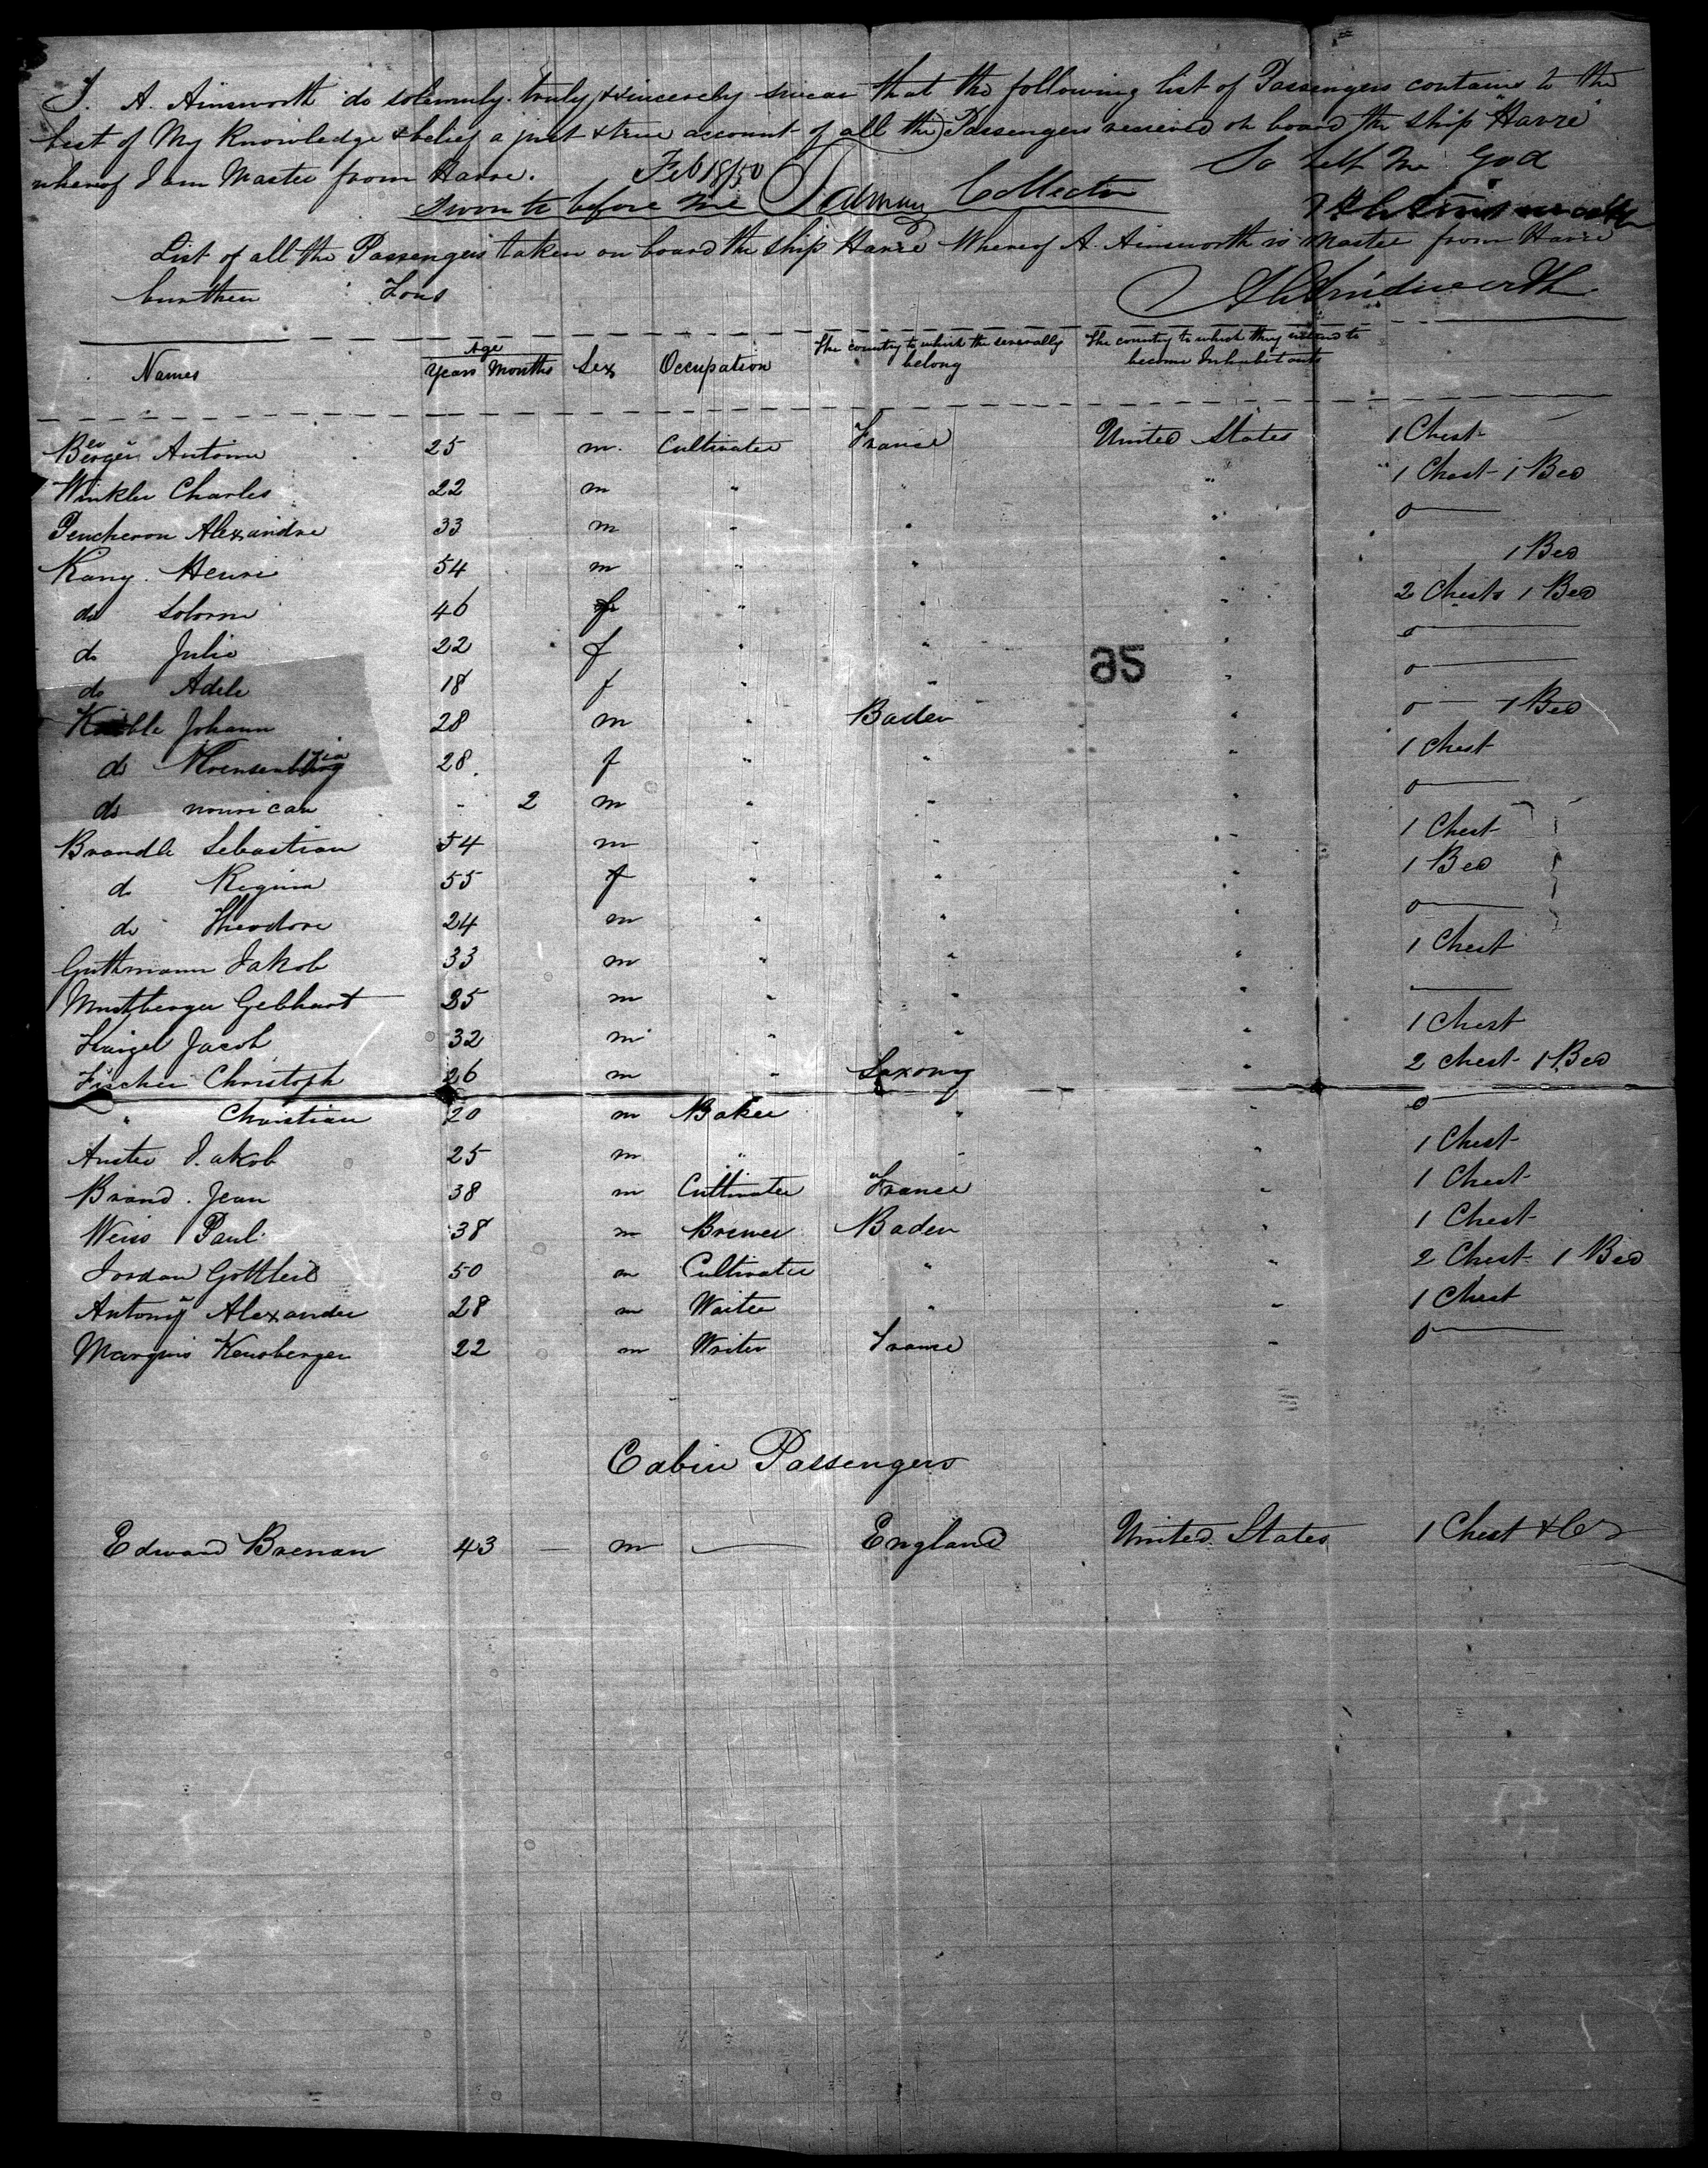 I. A. Ainsworth do solemnly truly & sincerely swear that the following list of Passengers contains to the
best of My Knowledge & belief a just & true account of all the Passengers received on board the ship "Havre"
whereof I am Master from Havre. Feb 18/50 So help me God
Sworn to before me Collector
List of all the Passengers taken on board the ship Havre Whereof A. Ainsworth is Master from Havre
burthen Tons A Ainsworth
Names Age Years Months Sex Occupation The country to which the severally belong The country to which they intend to become Inhabitants
Berger Antoine 25 m. Cultivator France United States 1 Chest
Winkler Charles 22 m " " " 1 Chest 1 Bed
Peucheron Alexandre 33 m " " " 0
Kany. Henri 54 m " " " 1 Bed
do 46 f " " " 2 Chests 1 Bed
do Julie 22 f " " " 0
do Adele 18 f " " " 0
Johann 28 m " Baden " 0 1 Bed
do 28 f " " " 1 Chest
do - 2 m " " " 0
Brandle Sebastian 54 m " " " 1 Chest
do Regina 55 f " " " 1 Bed
do Theodore 24 m " " " 0
Guthmann Jakob 33 m " " " 1 Chest
Gebhart 25 m " " "
Jacob 32 m " " " 1 Chest
Fischer Christoph 26 m " Saxony " 2 Chest 1 Bed
" Christian 20 m Baker " " 0
Jakob 25 m " " " 1 Chest
Brand. Jean 38 m Cultivator France " 1 Chest
Weiss Paul 38 m Brewer Baden " 1 Chest
Jordan Gottlieb 50 m Cultivator " " 2 Chest 1 Bed
Antony Alexander 28 m Waiter " " 1 Chest
Marquis 22 m Writer France " 0
Cabin Passengers
Edward Brenan 43 — m — England United States 1 Chest &c